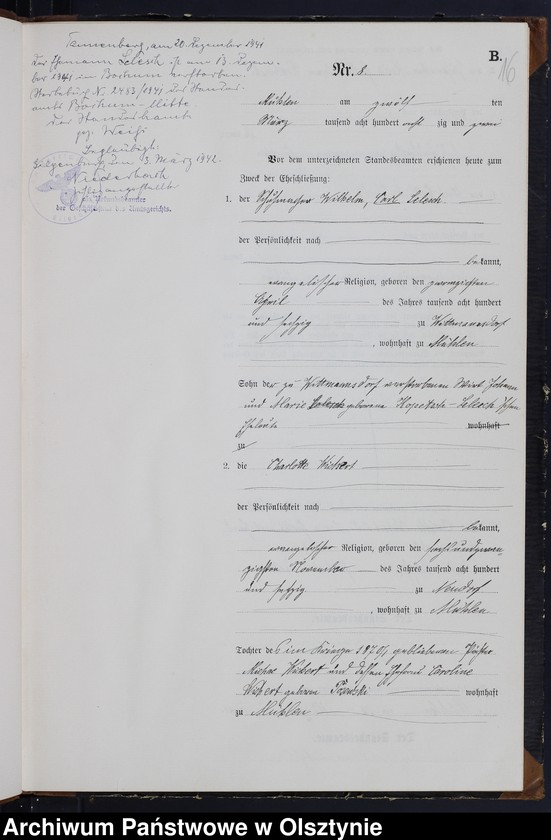 Tannenberg, am 20. Dezember 1941
Der Ehemann Lelesch ist am 13. Dezem-
ber 1941 in Bochum verstorben.
Sterbebuch Nr. 2483/1941 des Standes-
amts Bochum-Mitte
Der Standesbeamte
gez. Weiß
Beglaubigt:
Gilgenburg, den 3. März 1942.
Justizangestellter
als Urkundsbeamter
der Geschäftsstelle des Amtsgerichts.
B.
16
Nr. 8
Mühlen am zwölf ten
März tausend acht hundert acht zig und zwei
Vor dem unterzeichneten Standesbeamten erschienen heute zum
Zweck der Eheschließung:
1. der Schuhmacher Wilhelm, Carl Lelesch
der Persönlichkeit nach
bekannt,
evangelischer Religion, geboren den zwanzigsten
April des Jahres tausend acht hundert
und sechzig zu Wittmannsdorf
, wohnhaft zu Mühlen
Sohn der zu Wittmannsdorf verstorbenen Wirt Johann
und Marie geborene Lelesch'schen
Eheleute wohnhaft
zu
2. die Charlotte Wichert
der Persönlichkeit nach
bekannt,
evangelischer Religion, geboren den sechsundzwan
zigsten November des Jahres tausend acht hundert
und sechzig zu Neudorf
, wohnhaft zu Mühlen
Tochter des im Kriege 1870/1 gebliebenen
Wichert und dessen Ehefrau Caroline
Wichert geboren wohnhaft
zu Mühlen
Archiwum Państwowe w Olsztynie